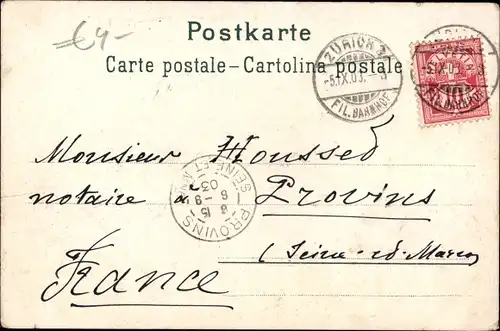 €4-
Postkarte
Carte postale - Cartolina postale
ZÜRICH 2
-5.IX.03.-8
FIL. BAHNHOF
Monsieur Houssed
notaire à Provins
(Seine-et-Marne)
France
PROVINS
8 15
6 -9
03
SEINE ET MARNE